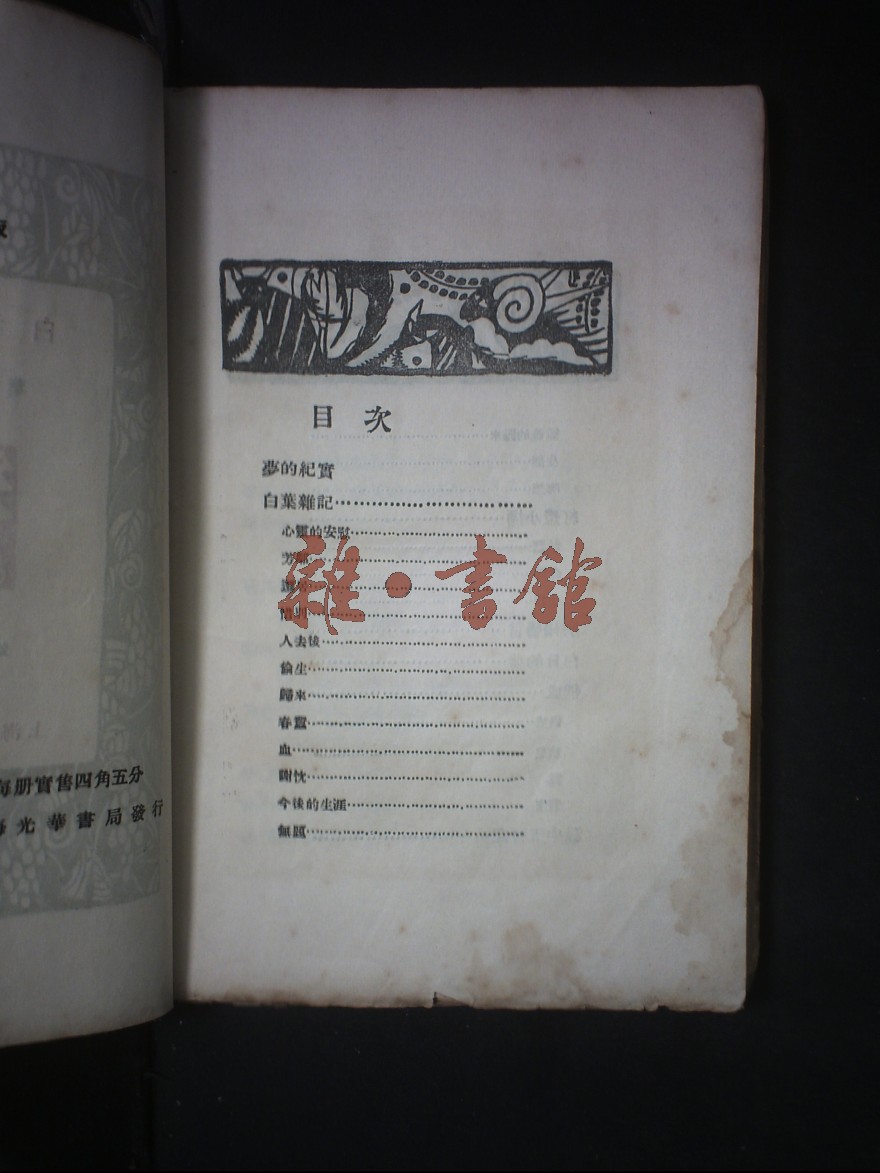 目次
夢的紀實
白葉雜記
心靈的安慰
惜別
人去後
偷生
歸來
春蠶
血
謝忱
今後的生涯
無題
雜·書館
白
每册實售四角五分
光華書局發行